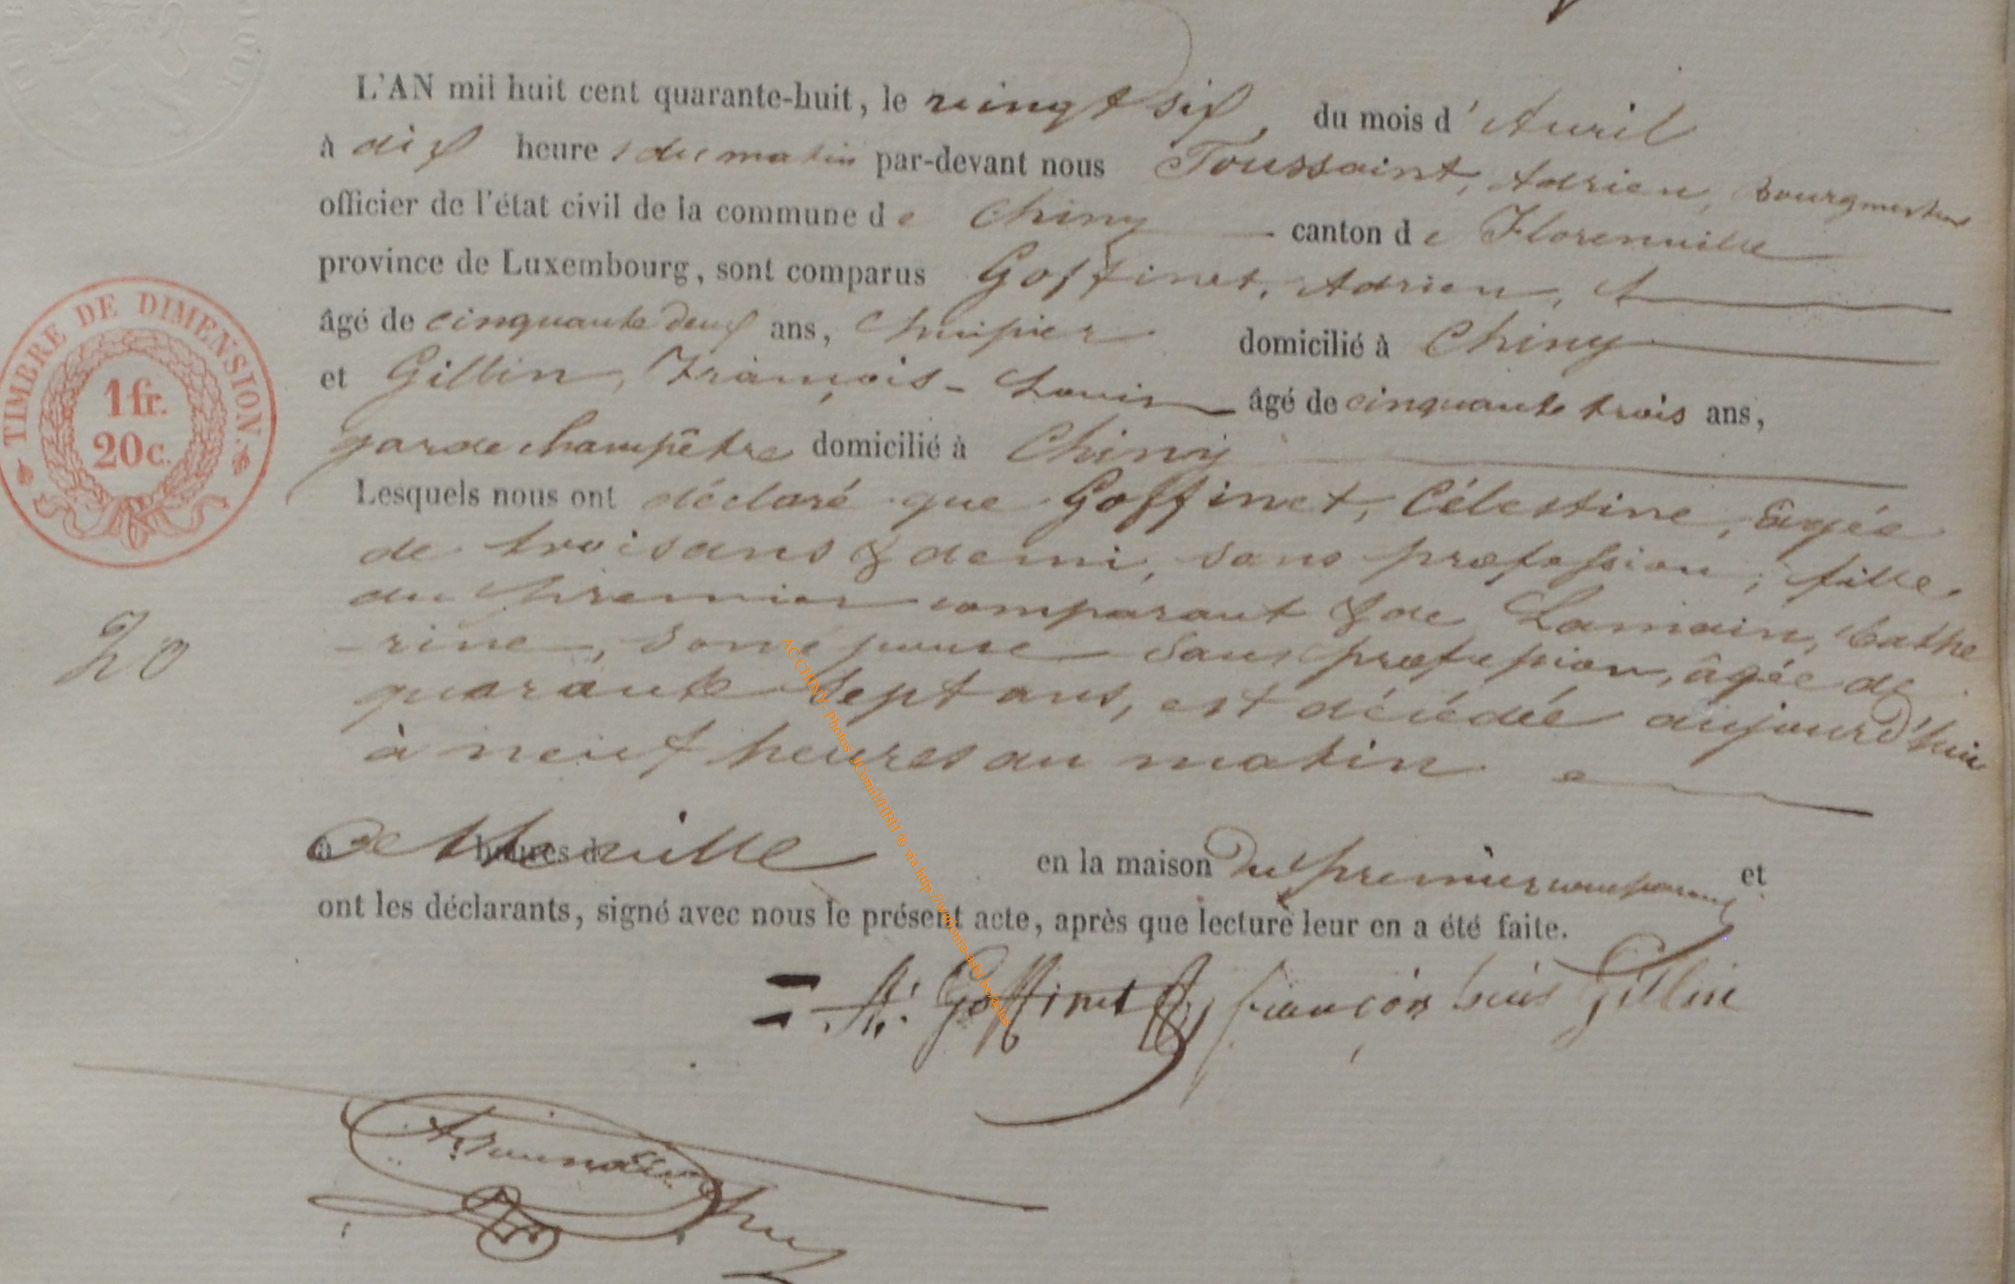 L'AN mil huit cent quarante-huit, le vingt six, du mois d'Avril
à dix heures du matin par-devant nous Toussaint, Adrien, bourgmestre
officier de l'état civil de la commune de Chiny canton de Florenville
province de Luxembourg, sont comparus Goffinet, Adrien,
âgé de cinquante deux ans, domicilié à Chiny
et Gillin, François-Louis âgé de cinquante trois ans,
garde champêtre domicilié à Chiny
Lesquels nous ont déclaré que Goffinet, Célestine, âgée
de trois ans & demi, sans profession, fille
du premier comparant & de Lamain, Cathe
-rine, son épouse sans profession, âgée de
quarante sept ans, est décédée aujourd'hui
à neuf heures du matin
à heures d en la maison du premier comparant et
ont les déclarants, signé avec nous le présent acte, après que lecture leur en a été faite.
A. Goffinet françois Louis Gillin
TIMBRE DE DIMENSION.
1 fr.
20 c.
20